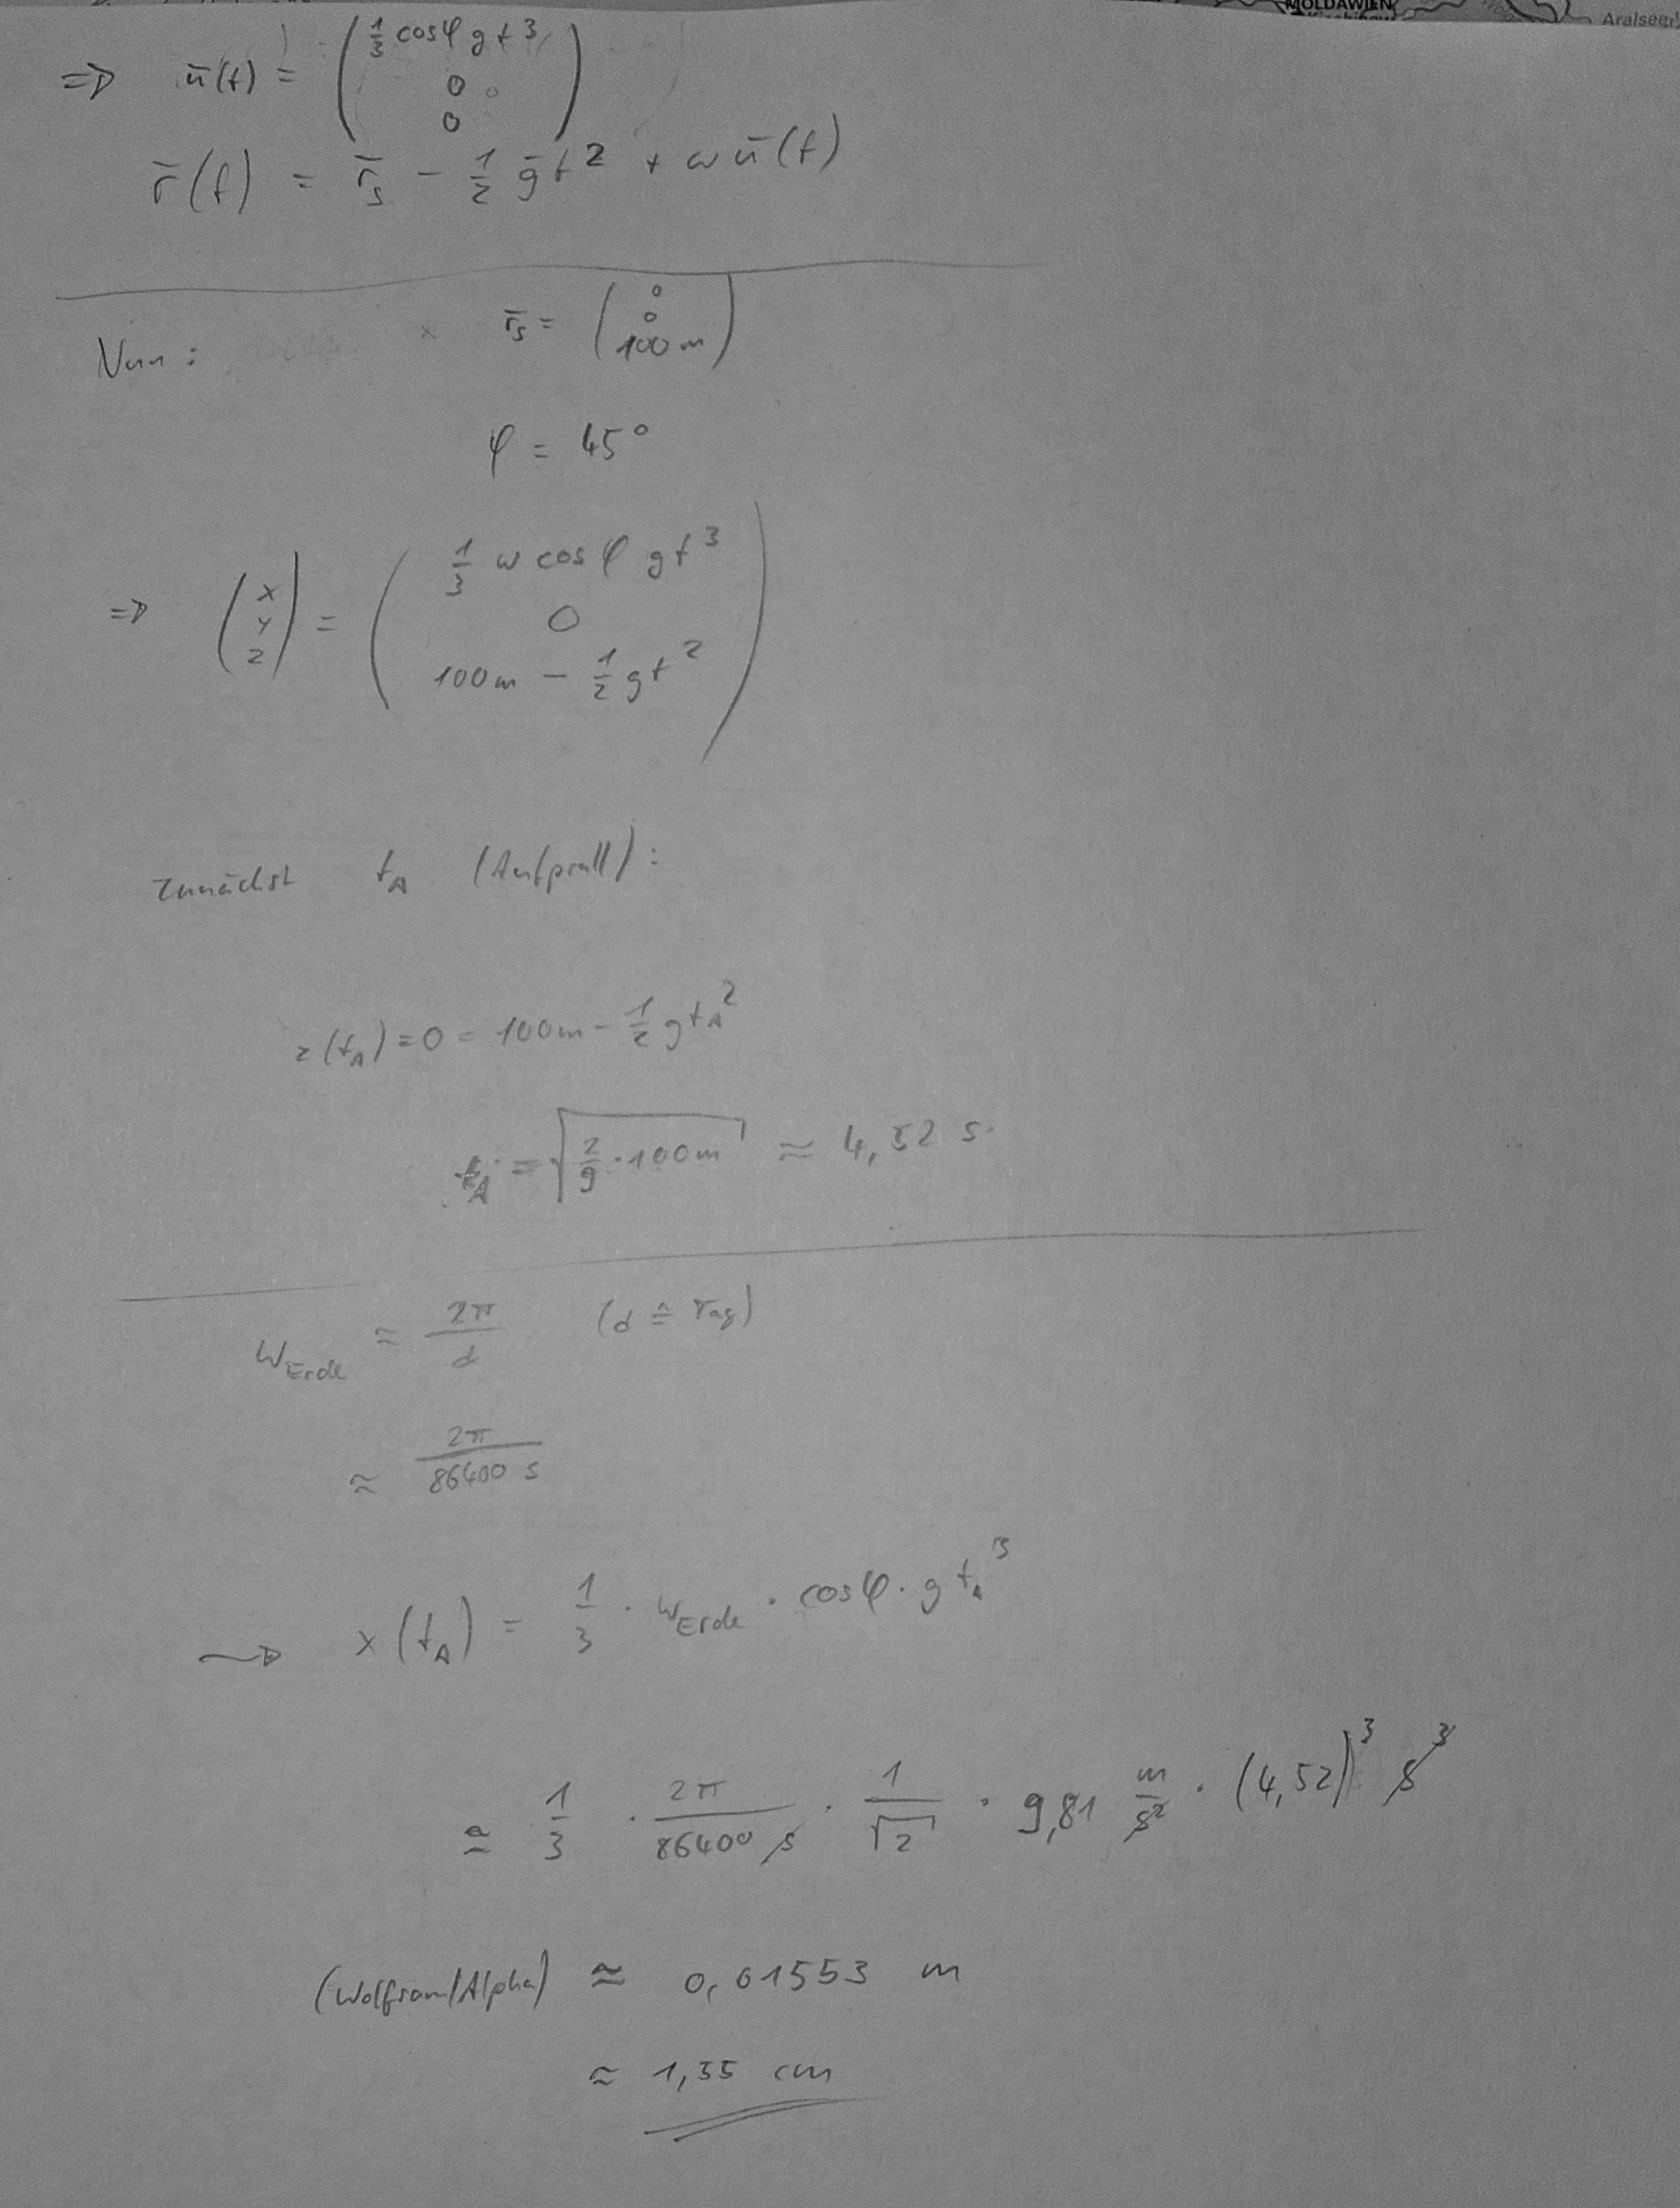 MOLDAWIEN
Aralsee
=> ū(t) = ( 1/3 cosφ g t³
0
0 )
r̄(t) = r̄s - 1/2 ḡt² + ω ū(t)
Nun : r̄s = ( 0
0
100m )
φ = 45°
=> ( x
y
z ) = ( 1/3 ω cos φ gt³
0
100m - 1/2 gt² )
Zunächst tA (Aufprall) :
z(tA) = 0 = 100m - 1/2 g tA²
tA = √(2/g · 100m) ≈ 4,52 s
ωErde ≈ 2π/d (d ≙ Tag)
≈ 2π/86400 s
→ x(tA) = 1/3 · ωErde · cosφ · g tA³
≅ 1/3 · 2π/86400 s · 1/√2 · 9,81 m/s² · (4,52)³ s³
(Wolfram/Alpha) ≈ 0,01553 m
≈ 1,55 cm